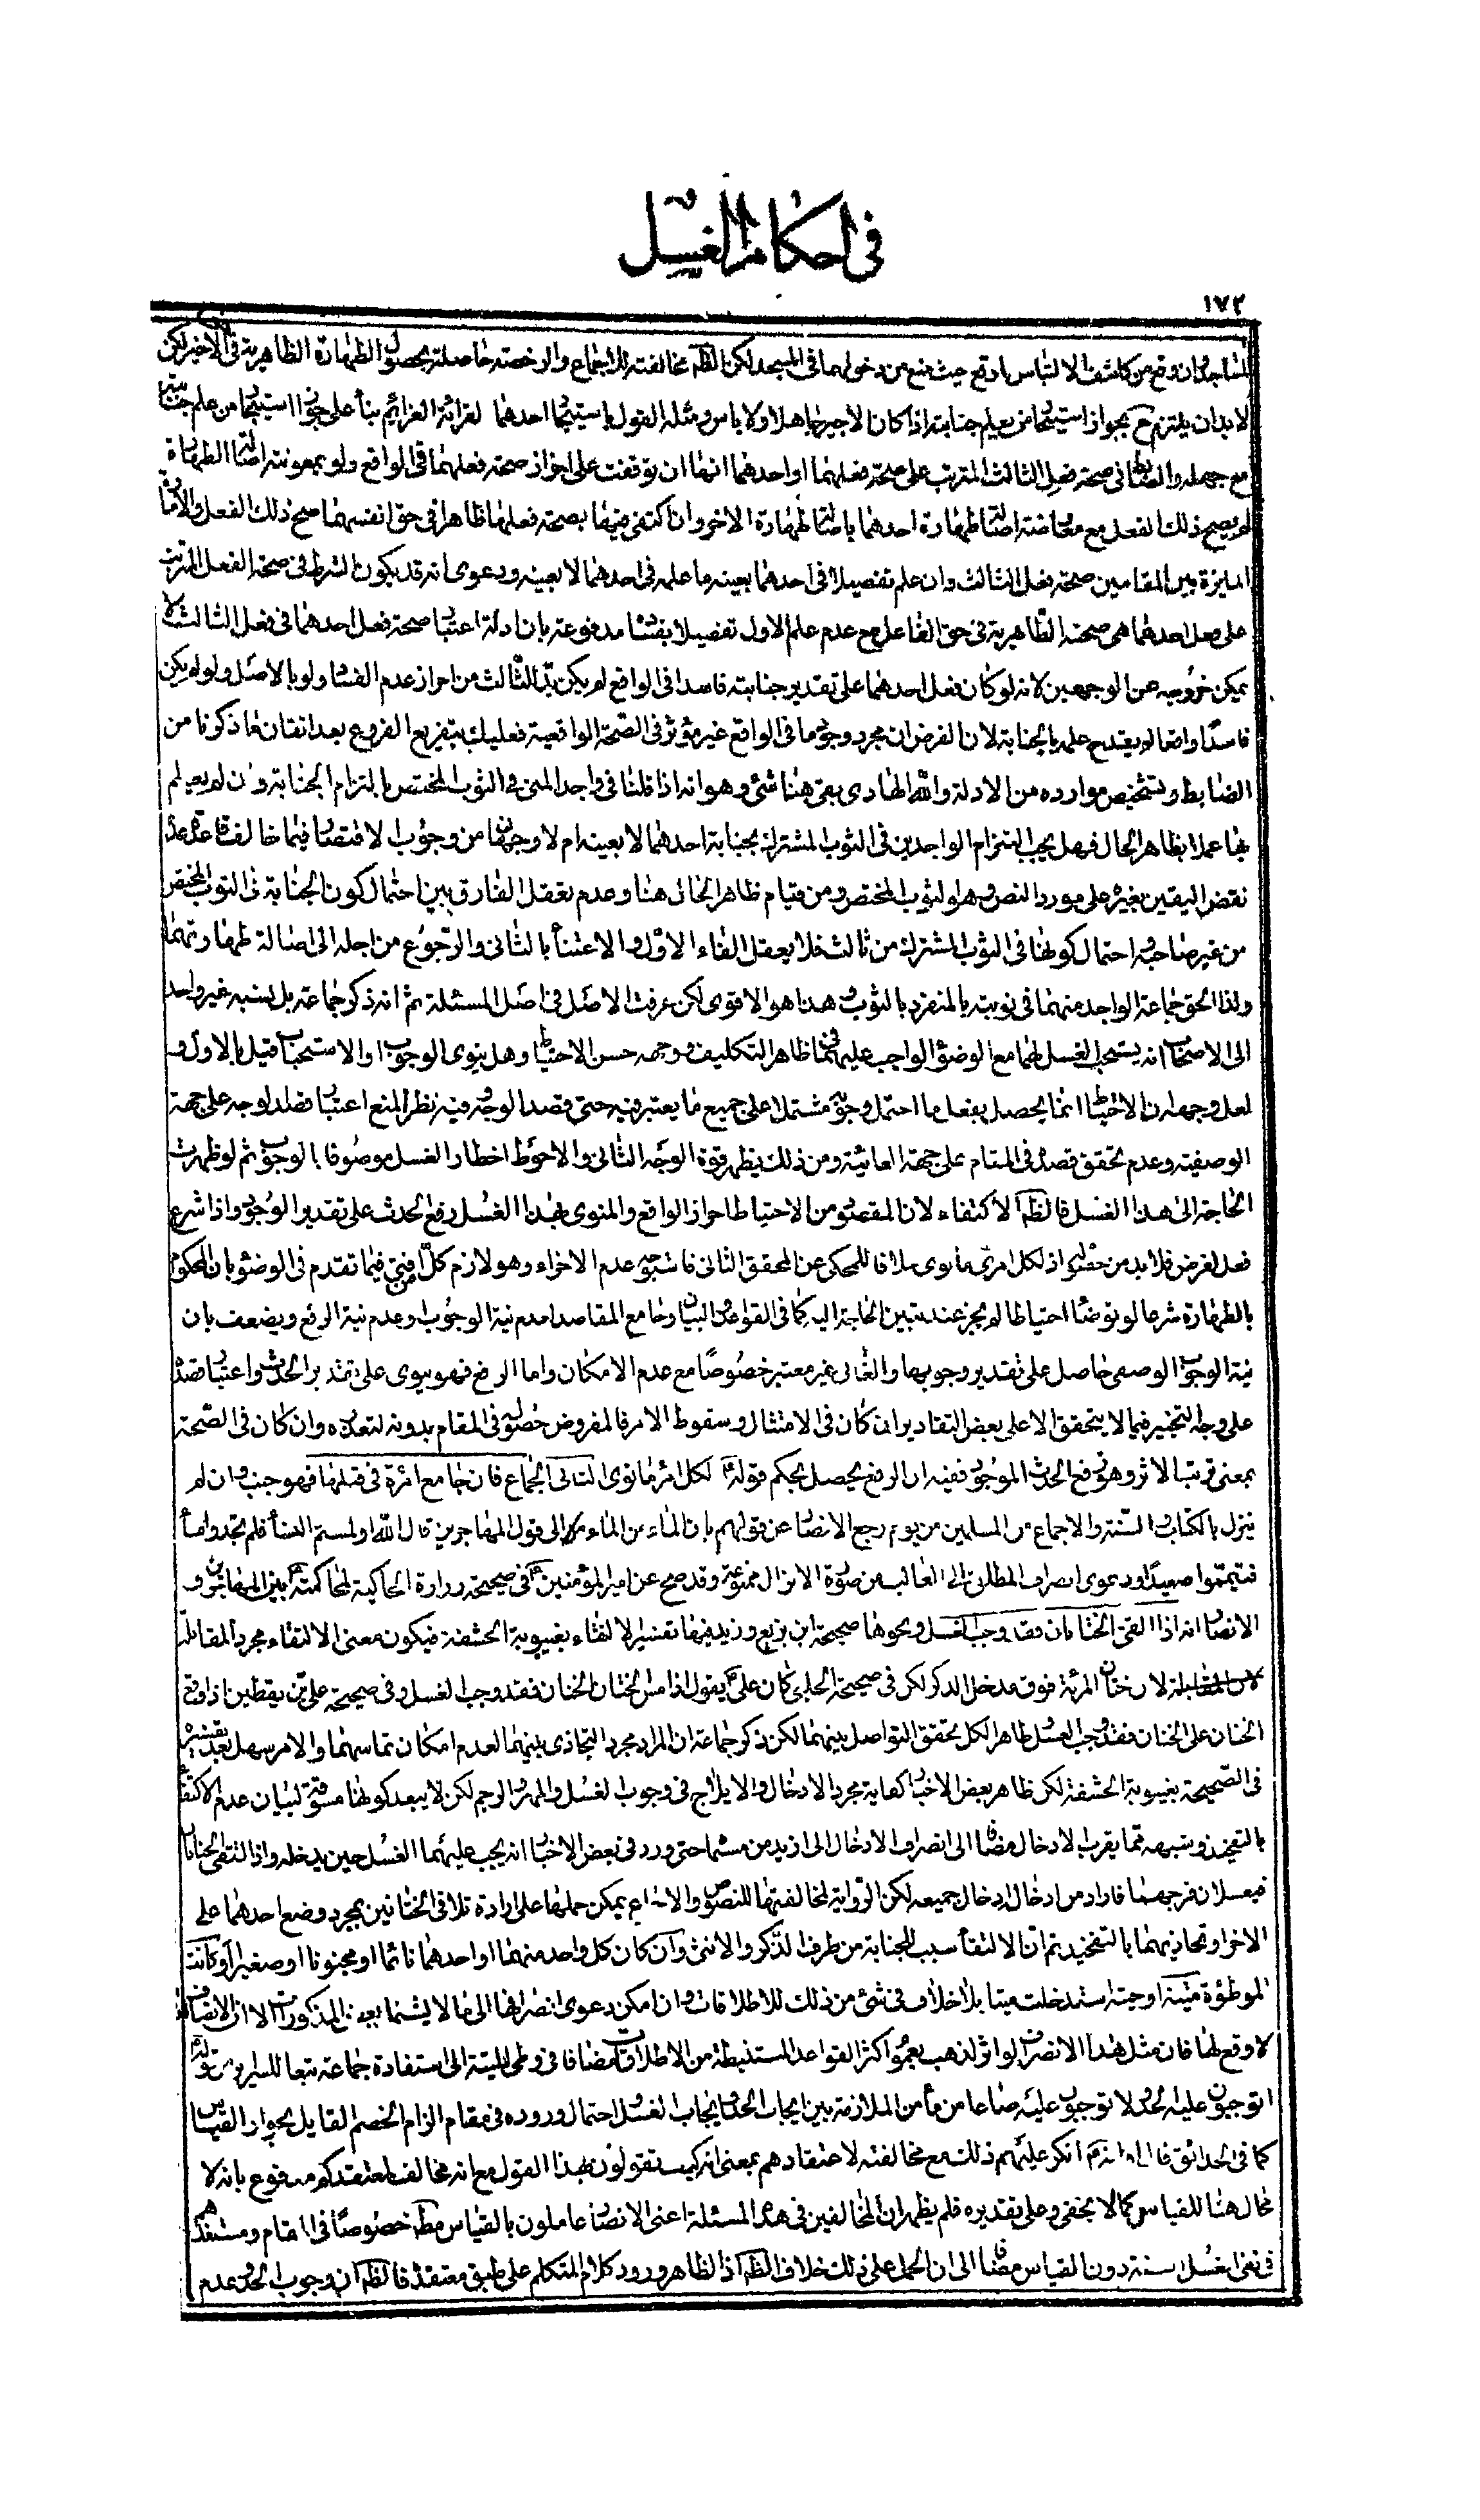 في احكام الغسل
١٧٢
المساجد وان وقع من كاشف الالتباس ما وقع حيث منع من دخولهما في المسجد لكن الظ مخالفته للاجماع والرخصة حاصلة بحصول الطهارة الظاهرية في الاخير لكن
لا بد ان يلتزم ح بجواز استيجار من يعلم جنابته اذا كان الاجير جاهلا ولا باس ومثله القول باستيجار احدهما لقرائة العزائم بناء على جواز استيجار من علم جنابته
مع جهله والضابط في صحة فعل الثالث المترتب على صحة فعلهما او احدهما انها ان توقفت على احراز صحة فعلهما في الواقع ولو بمعونة اصالة الطهارة
لم يصح ذلك الفعل مع معارضة اصالة طهارة احدهما باصالة طهارة الاخر وان اكتفى فيها بصحة فعلهما ظاهرا في حق انفسهما صح ذلك الفعل والامارة
المايزة بين المقامين صحة فعل الثالث وان علم تفصيلا في احدهما بعينه ما علمه في احدهما لا بعينه ودعوى انه قد يكون الشرط في صحة الفعل المترتب
على فعل احدهما هي صحته الظاهرية في حق الفاعل مع عدم علم الاول تفصيلا بفساده مدفوعة بان ادلة اعتبار صحة فعل احدهما في فعل الثالث لا
يمكن خروجه عن الوجهين لانه لو كان فعل احدهما على تقدير جنابته فاسدا في الواقع لم يكن بد للثالث من احراز عدم الفساد ولو بالاصل ولو لم يكن
فاسدا واقعا لم يقدح علمه بالجنابة لان الفرض ان مجرد وجودها في الواقع غير مؤثر في الصحة الواقعية فعليك بتفريع الفروع بعد اتقان ما ذكرنا من
الضابط وتشخيص موارده من الادلة والله الهادي بقي هنا شئ وهو انه اذا قلنا في واجد المني في الثوب المختص بالتزام الجنابة وان لم يعلم
بها عملا بظاهر الحال فهل يجب التزام الواجدين في الثوب المشترك بجنابة احدهما لا بعينه ام لا وجهان من وجوب الاقتصار فيما خالف قاعدة عدم
نقض اليقين بغيره على مورد النص وهو الثوب المختص ومن قيام ظاهر الحال هنا وعدم تعقل الفارق بين احتمال كون الجنابة في الثوب المختص
من غير صاحبه واحتمال كونها في الثوب المشترك من ثالث فلا يعقل الغاء الاول والاعتناء بالثاني والرجوع من اجله الى اصالة طهارتهما
ولذا الحق جماعة الواجد منهما في نوبته بالمنفرد بالثوب وهذا هو الاقوى لكن عرفت الاصل في اصل المسئلة ثم انه ذكر جماعة بل نسبه غير واحد
الى الاصحاب انه يستحب الغسل لهما مع الوضوء الواجب عليهما في ظاهر التكليف ووجهه حسن الاحتياط وهل ينوى الوجوب او الاستحباب قيل بالاول و
لعل وجهه ان الاحتياط انما يحصل بفعل ما احتمل وجوبه مشتملا على جميع ما يعتبر فيه حتى قصد الوجه وفيه نظر لمنع اعتبار قصد الوجه على جهة
الوصفية وعدم تحقق قصده في المقام على جهة الغائية ومن ذلك يظهر قوة الوجه الثاني والاحوط اخطار الغسل موصوفا بالوجوب ثم لو ظهرت
الحاجة الى هذا الغسل فالظ الاكتفاء لان المقصود من الاحتياط احراز الواقع والمنوى بهذا الغسل رفع الحدث على تقدير الوجود واذا شرع
فعل لغرض فلا بد من حصوله اذ لكل امرئ ما نوى خلافا للمحكى عن المحقق الثاني فاستوجه عدم الاجزاء وهو لازم كل من افتى فيما تقدم في الوضوء بان المحكوم
بالطهارة شرعا لو توضأ احتياطا لم يجز عند تبين الحاجة اليه كما في القواعد والبيان وجامع المقاصد لعدم نية الوجوب وعدم نية الرفع ويضعف بان
نية الوجوب الوصفى حاصل على تقدير وجوبها والغائى غير معتبر خصوصا مع عدم الامكان واما الرفع فهو ينوى على تقدير الحدث واعتبار قصده
على وجه التخيير فيما لا يتحقق الا على بعض التقادير ان كان في الامتثال وسقوط الامر فالمفروض حصوله في المقام بدونه لتعذره وان كان في الصحة
بمعنى ترتب الاثر وهو رفع الحدث الموجود ففيه ان الرفع يحصل بحكم قوله لكل امرئ ما نوى الثاني الجماع فان جامع امرئة في قبلها فهو جنب وان لم
ينزل بالكتاب والسنة والاجماع من المسلمين من يوم رجع الانصار عن قولهم بان الماء من الماء الى قول المهاجرين قال الله او لمستم النساء فلم تجدوا ماء
فتيمموا صعيدا ودعوى انصراف المطلق الى الغالب من صورة الانزال ممنوعة وقد صح عن امير المؤمنين ع في صحيحة زرارة الحاكية لمحاكمته بين المهاجرين و
الانصار انه اذا التقى الختانان فقد وجب الغسل ونحوها صحيحة ابن بزيع وزيد فيها تفسير الالتقاء بغيبوبة الحشفة فيكون معنى الالتقاء مجرد المقابلة
لان ختان المرئة فوق مدخل الذكر لكن في صحيحة الحلبى كان على ع يقول اذا مس الختان الختان فقد وجب الغسل وفي صحيحة على بن يقطين اذا وقع
الختان على الختان فقد وجب الغسل ظاهر الكل تحقق التواصل بينهما لكن ذكر جماعة ان المراد مجرد التحاذى بينهما لعدم امكان تماسهما والامر سهل بعد تفسيره
في الصحيحة بغيبوبة الحشفة لكن ظاهر بعض الاخبار كفاية مجرد الادخال والايلاج في وجوب الغسل والمهر والرجم لكن لا يبعد كونها مسوقة لبيان عدم الاكتفاء
بالتفخيذ وشبهه مما يقرب الادخال مضافا الى انصراف الادخال الى ازيد من مسماه حتى ورد في بعض الاخبار انه يجب عليهما الغسل حين يدخله واذا التقى الختانان
فيغسلان فرجهما فاراد من ادخال ادخال جميعه لكن الرواية لمخالفتها للنصوص والاجماع يمكن حملها على ارادة تلاقي الختانين بمجرد وضع احدهما على
الاخر وتحاذيهما بالتفخيذ ثم ان الالتقاء سبب للجنابة من طرف الذكر والانثى وان كان كل واحد منهما او احدهما نائما او مجنونا او صغيرا او كانت
الموطؤة ميتة او حية استدخلت ميتا بلا خلاف في شئ من ذلك للاطلاقات وان امكن دعوى انصرافها الى ما لا يشمل بعض المذكورات الا ان الانصاف انه
لا وقع لها فان مثل هذا الانصراف لو اثر لذهب بعموم اكثر القواعد المستنبطة من الاطلاقات مضافا في وطى الميتة الى استفادة جماعة تبعا للسرائر من قوله
اتوجبون عليه الحد ولا توجبون عليه صاعا من ماء من الملازمة بين ايجاب الحد وايجاب الغسل واحتمال وروده في مقام الزام الخصم القايل بجواز القياس
كما في الحدائق قال انه ع انكر عليهم ذلك مع مخالفته لاعتقادهم بمعنى انه كيف تقولون بهذا القول مع انه مخالف لمعتقدكم مدفوع بانه لا
مجال هنا للقياس كما لا يخفى وعلى تقديره فلم يظهر ان المخالفين في هذه المسئلة اعنى الانصار عاملون بالقياس مط خصوصا في المقام ومستندهم
في نفى الغسل السنة دون القياس مضافا الى ان الحمل على ذلك خلاف الظ اذ الظاهر ورود كلام المتكلم على طبق معتقده فالظ ان وجوب الحد وعدم